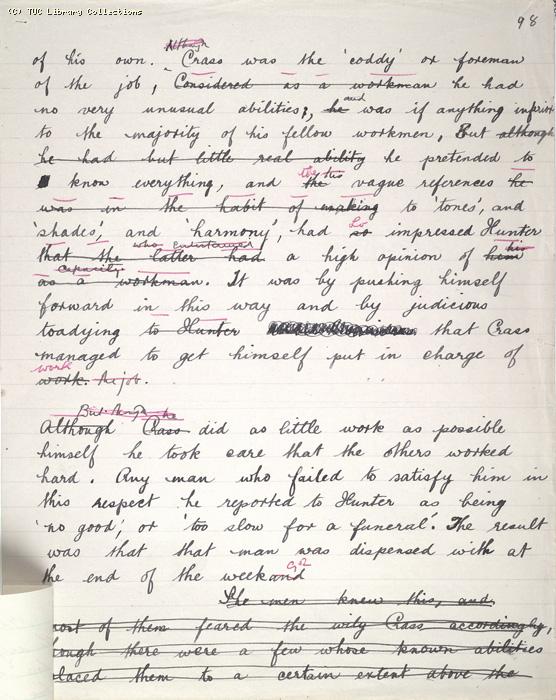 (C) TUC Library Collections
98
Although
of his own. Crass was the 'coddy' or foreman
of the job, Considered as a workman he had
and
no very unusual abilities; he was if anything inferior
to the majority of his fellow workmen, But although
he had but little real ability he pretended to
know everything, and the vague references he
was in the habit of making to 'tones', and
so
'shades', and 'harmony', had so impressed Hunter
who entertained his
that the latter had a high opinion of him
capacity
as a workman. It was by pushing himself
forward in this way and by judicious
toadying to Hunter that Crass
managed to get himself put in charge of
work
work. the job.
But though he
Although Crass did as little work as possible
himself he took care that the others worked
hard. Any man who failed to satisfy him in
this respect he reported to Hunter as being
'no good', or 'too slow for a funeral'. The result
was that that man was dispensed with at
the end of the week and
The men knew this, and
most of them feared the wily Crass accordingly,
though there were a few whose known abilities
placed them to a certain extent above the